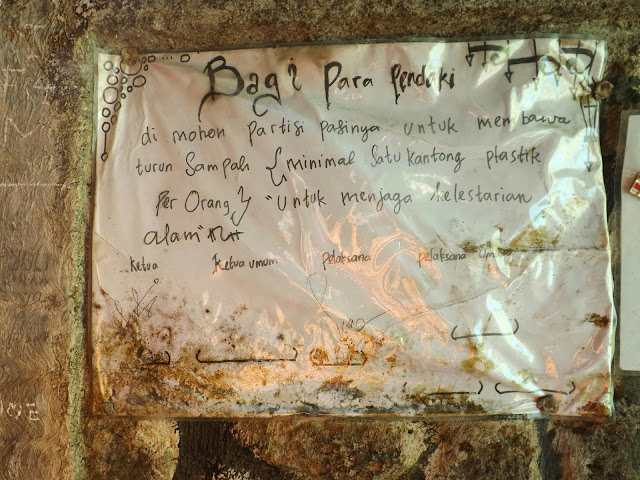 Bagi Para Pendaki
di mohon Partisi pasinya untuk membawa
turun Sampah { minimal Satu kantong plastik
Per Orang } "untuk menjaga kelestarian
alam"
Ketua Ketua umum pelaksana pelaksana Um